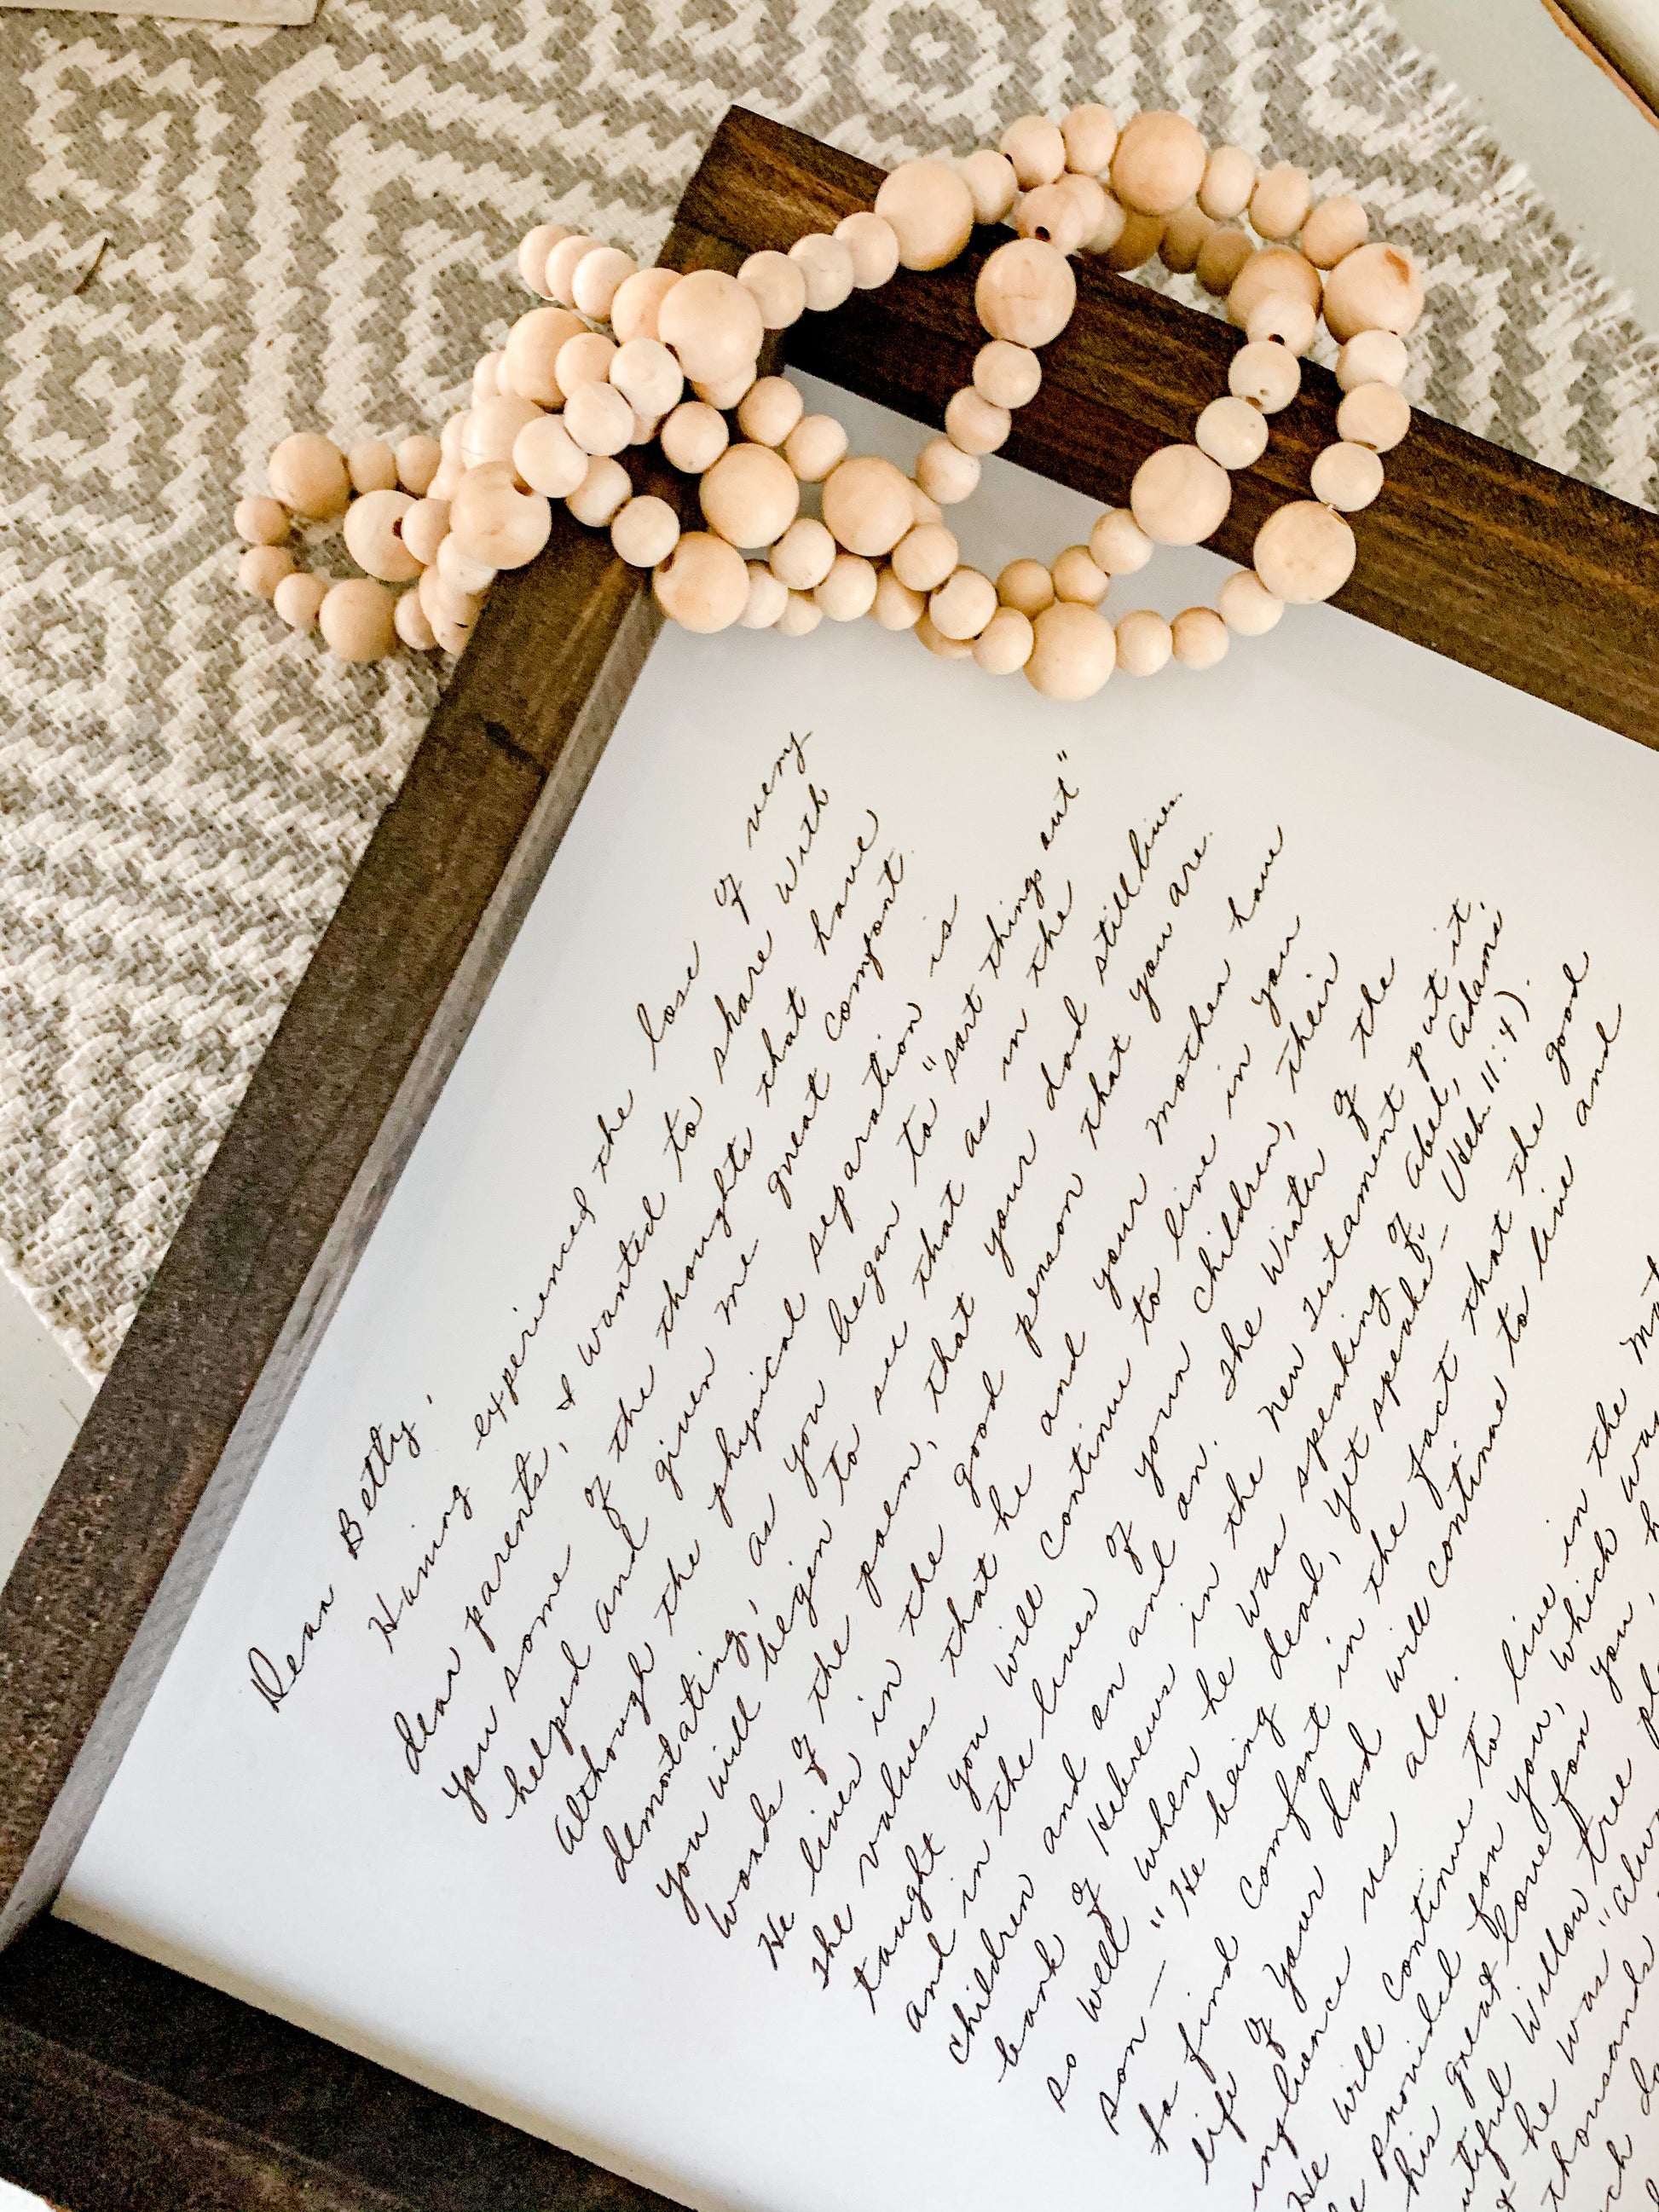 Dear Betty,
Having experienced the lose of very
dear parents, I wanted to share with
you some of the thoughts that have
helped and given me great comfort.
Although the physical separation is
devastating, as you began to "sort things out"
you will begin to see that as in the
words of the poem, that your dad still lives.
He lives in the good person that you are.
The values that he and your mother have
taught you will continue to live in you
and in the lives of your children, their
children and on and on. The Writer of the
book of Hebrews in the New Testament put it,
so well when he was speaking of Abel, Adams
son — "He being dead, yet speaks" — Heb. 11:4).
to find comfort in the fact that the good
life of your dad will continue to live and
influence us all.
He will continue to live in the
he provided for you, which was
his great love for you, h
utiful willow tree
he was "alw
thousands